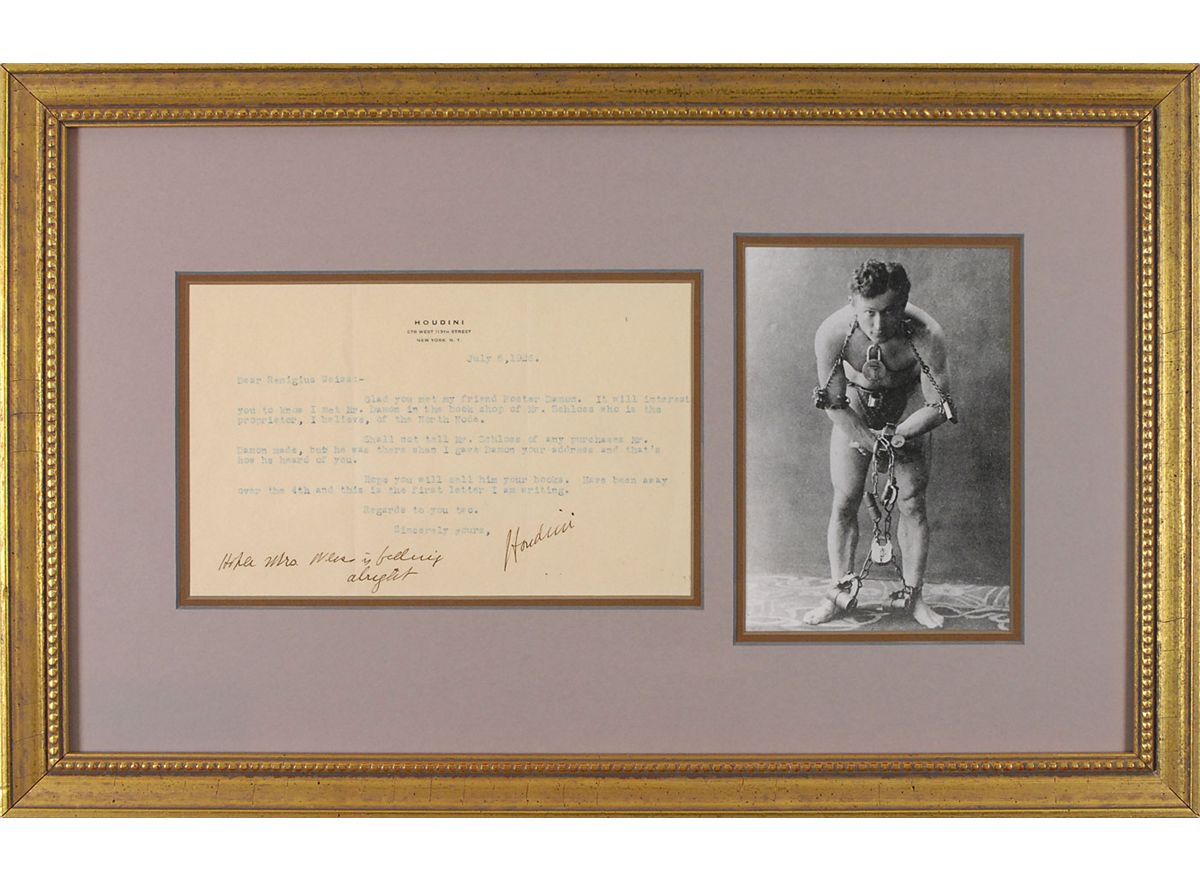 HOUDINI
278 WEST 113TH STREET
NEW YORK, N. Y.
July 6,1926.
Dear Remigius Weiss:-
Glad you met my friend Foster Damon. It will interest
you to know I met Mr. Damon in the book shop of Mr. Schloss who is the
proprietor, I believe, of the North Node.
Shall not tell Mr. Schloss of any purchases Mr.
Damon made, but he was there when I gave Damon your address and that's
how he heard of you.
Hope you will sell him your books. Have been away
over the 4th and this is the first letter I am writing.
Regards to you two.
Sincerely yours,
Houdini
Hope Mrs. Weiss is feeling
alright